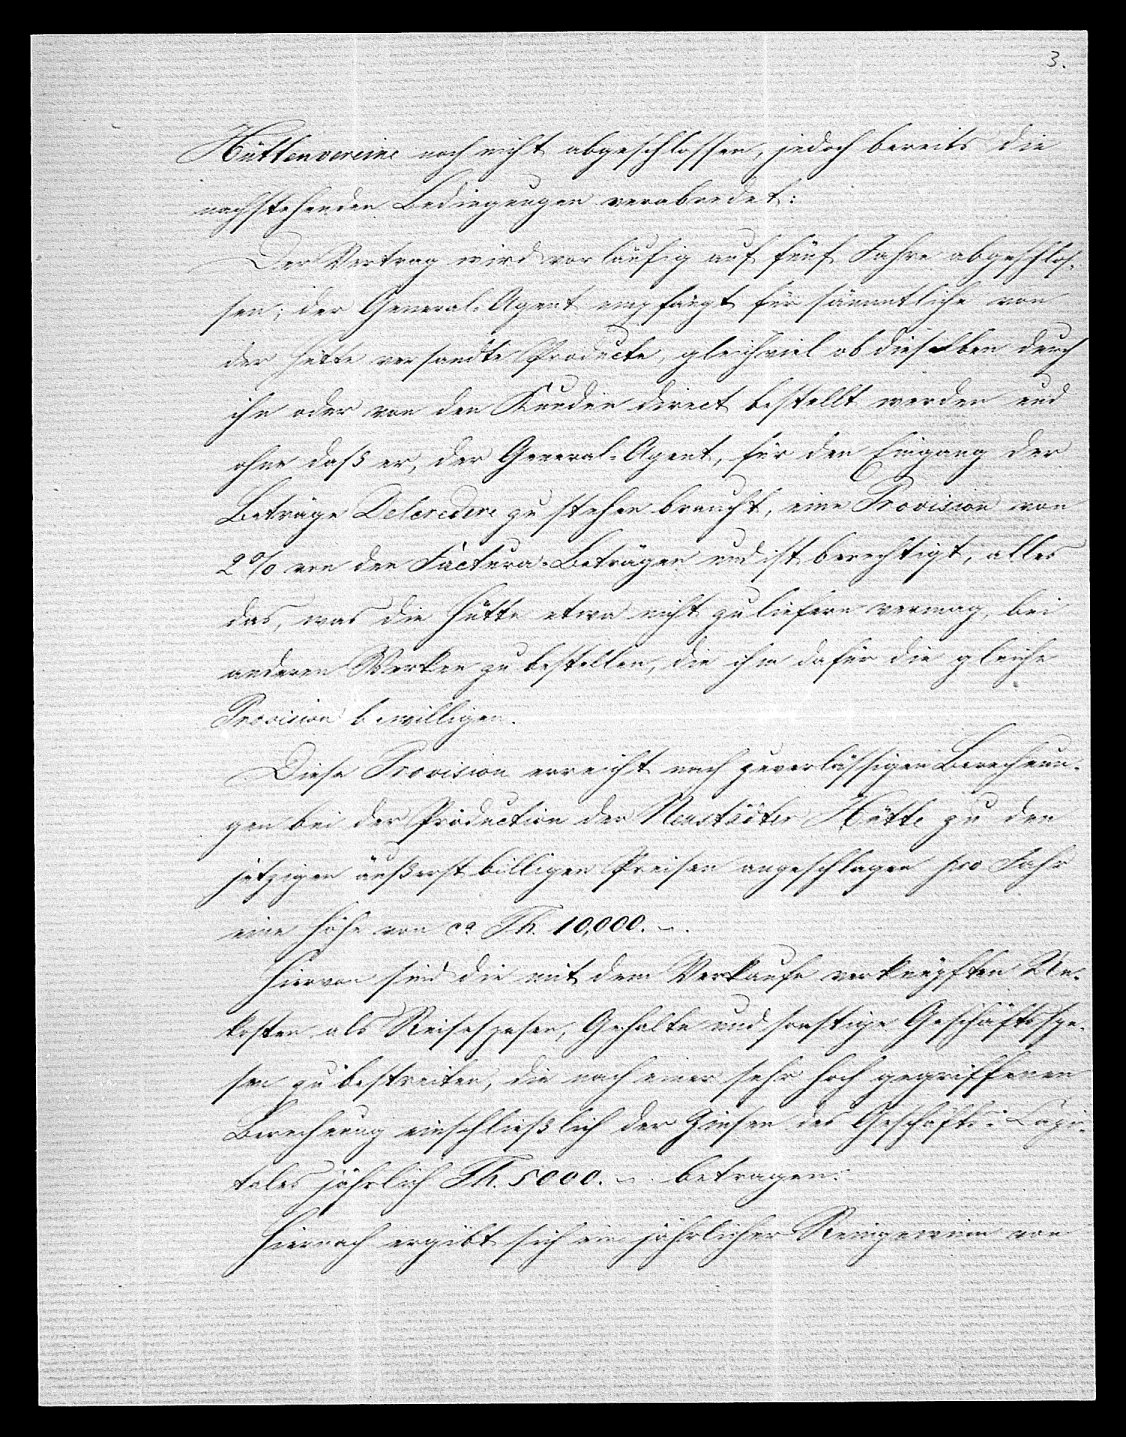 3.
Hüttenvereine noch nicht abgeschlossen, jedoch bereits die
nachstehenden Bedingungen verabredet:
Der Vertrag wird vorläufig auf fünf Jahre abgeschlos-
sen; der General-Agent empfängt für sämmtliche von
der Hütte versandte Producte, gleichviel ob dieselben durch
ihn oder von den Kunden direct bestellt werden und
ohne daß er, der General-Agent, für den Eingang der
Beträge Delcredere zu stehen braucht, eine Provision von
2% von den Factura-Beträgen und ist berechtigt, alles
das, was die Hütte etwa nicht zu liefern vermag, bei
anderen Werken zu bestellen, die ihm dafür die gleiche
Provision bewilligen.
Diese Provision erreicht nach zuverlässigen Berechnun-
gen bei der Production der Neustädter Hütte zu den
jetzigen äußerst billigen Preisen angeschlagen pro Jahr
eine Höhe von ca Th. 10,000. –.
Hiervon sind die mit dem Verkaufe verknüpften Un-
kosten als Reisespesen, Gehalte und sonstige Geschäftsspe-
sen zu bestreiten, die nach einer sehr hoch gegriffenen
Berechnung einschließlich der Zinsen des Geschäfts-Capi-
tales jährlich Th. 5000. – betragen.
Hiernach ergibt sich ein jährlicher Reingewinn von